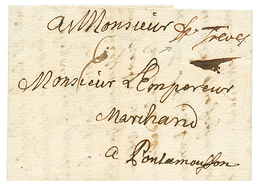 a Monsieur
de Treves
Monsieur L'Empereur
Marchand
a Pontamousson